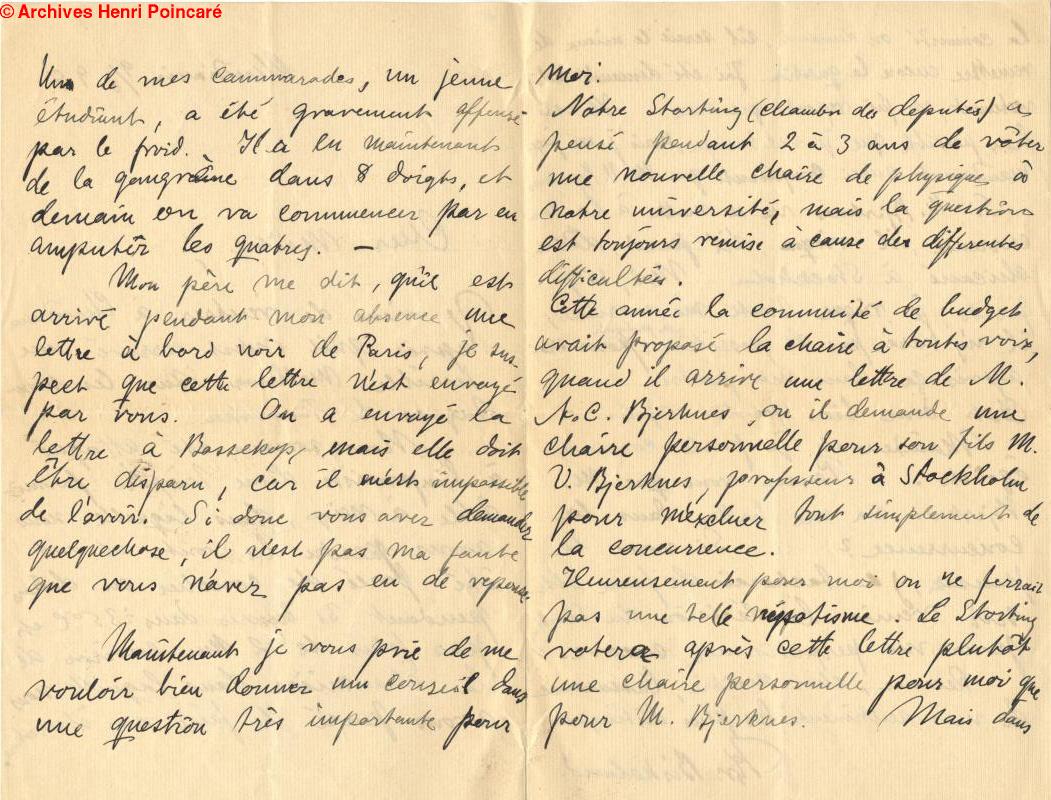 © Archives Henri Poincaré
Un de mes cammarades, un jeune
étudiant, a été gravement affensé
par le froid. Il a eu maintenant
de la gangraine dans 8 doigts, et
demain on va commencer par en
amputêr les quatres. —
Mon père me dit, qu'il est
arrivé pendant mon absence une
lettre à bord noir de Paris, je sus-
pect que cette lettre n'est envayé
par vous. On a envayé la
lettre à Bossekop, mais elle doit
être disparu, car il m'est impossible
de l'avoir. Si donc vous avez demander
quelquechose, il n'est pas ma faute
que vous n'avez pas eu de reponse.
Maintenant je vous prie de me
vouloir bien donner un conseil dans
une question très importante pour
moi.
Notre Storting (chambre des deputés) a
pensé pendant 2 à 3 ans de vôter
une nouvelle chaire de physique à
notre université, mais la question
est toujours remise à cause des differentes
difficultées.
Cette année la commité de budget
avait proposé la chaire à toutes voix,
quand il arrive une lettre de M.
A. C. Bjerknes ou il demande une
chaire personnelle pour son fils M.
V. Bjerknes, professeur à Stockholm
pour m'excluer tout simplement de
la concurrence.
Heureusement pour moi on ne ferrait
pas une telle népotisme. Le Storting
votera après cette lettre plutôt
une chaire personnelle pour moi que
pour M. Bjerknes. Mais dans